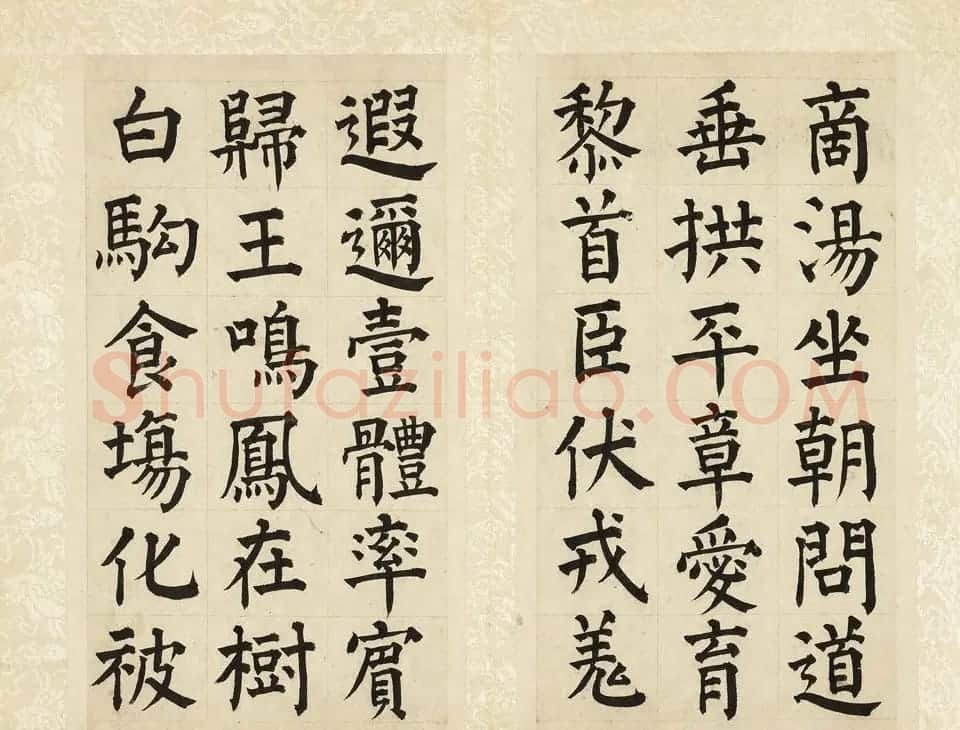 商湯坐朝問道
垂拱平章愛育
黎首臣伏戎羌
遐邇壹體率賓
歸王鳴鳳在樹
白駒食場化被
Shufaziliao.COM